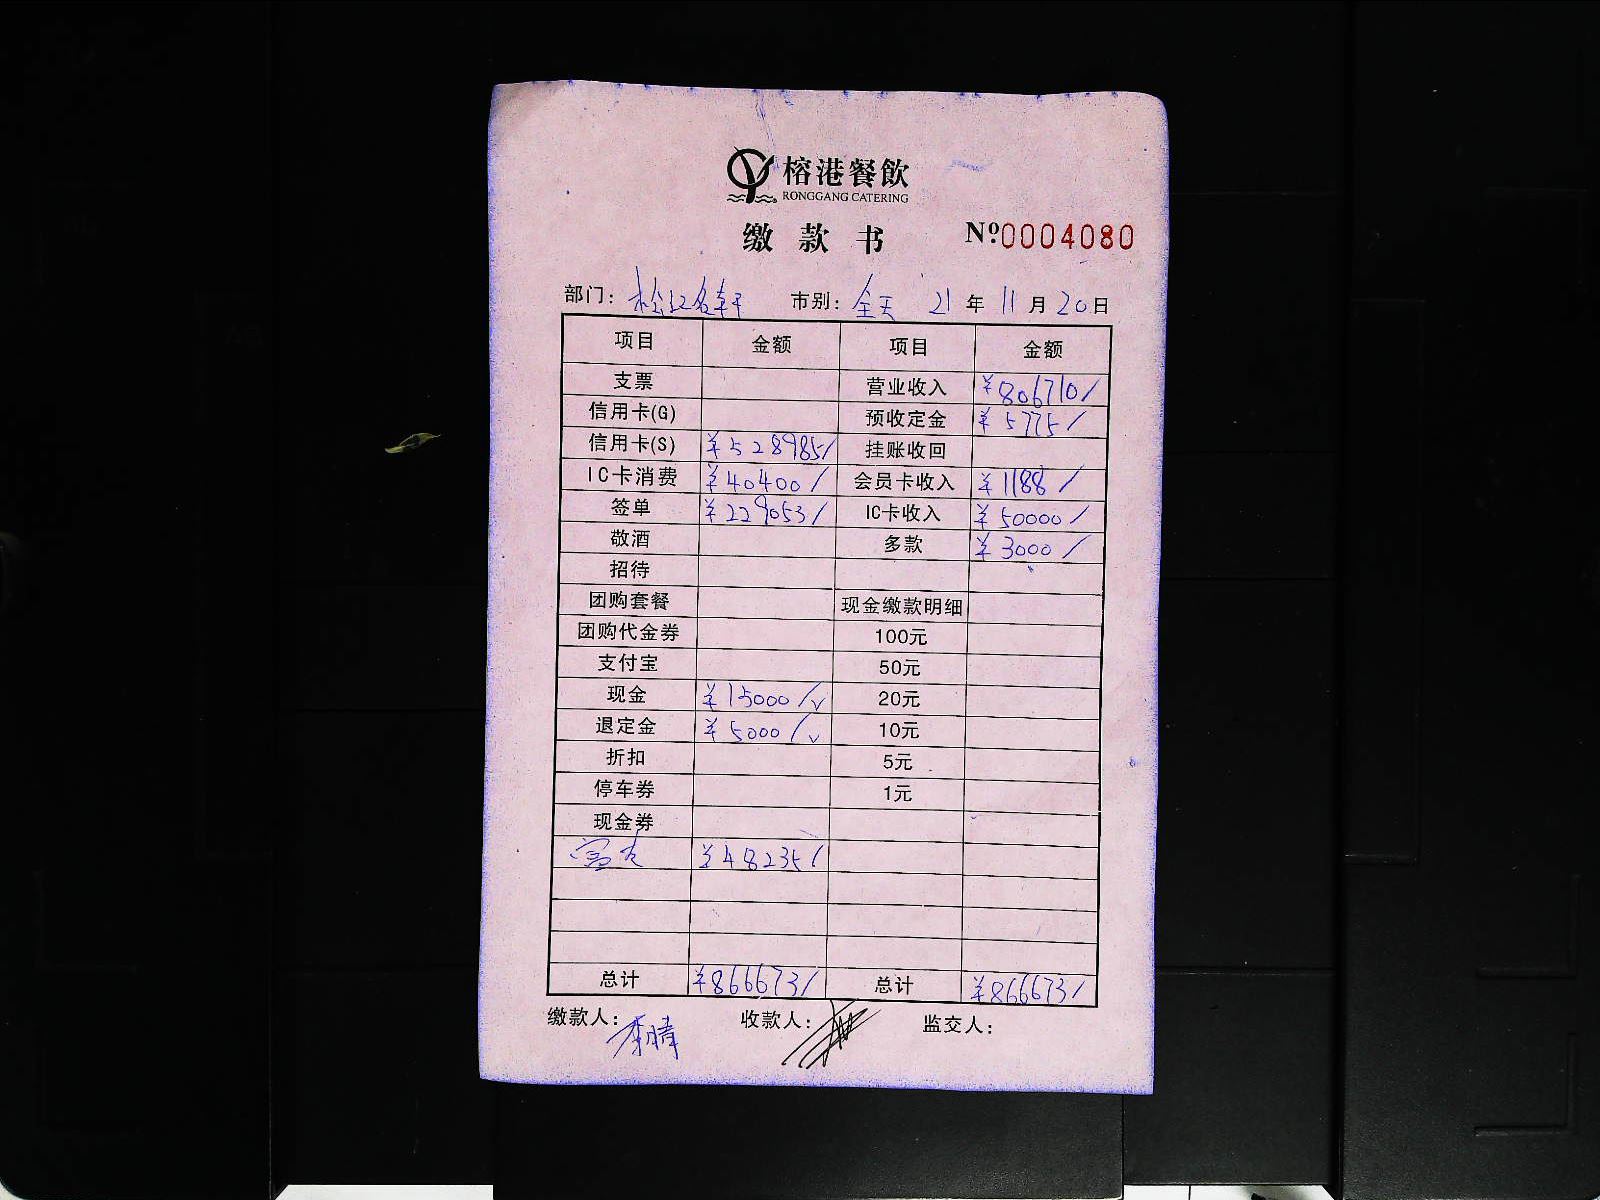 榕港餐飲
RONGGANG CATERING
缴款书 Nº0004080
部门: 松江名轩 市别: 全天 21年11月20日
项目 金额 项目 金额
支票 营业收入 ¥806710/
信用卡(G) 预收定金 ¥5775/
信用卡(S) ¥528985/ 挂账收回
IC卡消费 ¥40400/ 会员卡收入 ¥1188/
签单 ¥229053/ IC卡收入 ¥50000/
敬酒 多款 ¥3000/
招待
团购套餐 现金缴款明细
团购代金券 100元
支付宝 50元
现金 ¥15000/√ 20元
退定金 ¥5000/√ 10元
折扣 5元
停车券 1元
现金券
富友 ¥48235/
总计 ¥866673/ 总计 ¥866673/
缴款人: 李晴 收款人: 监交人: